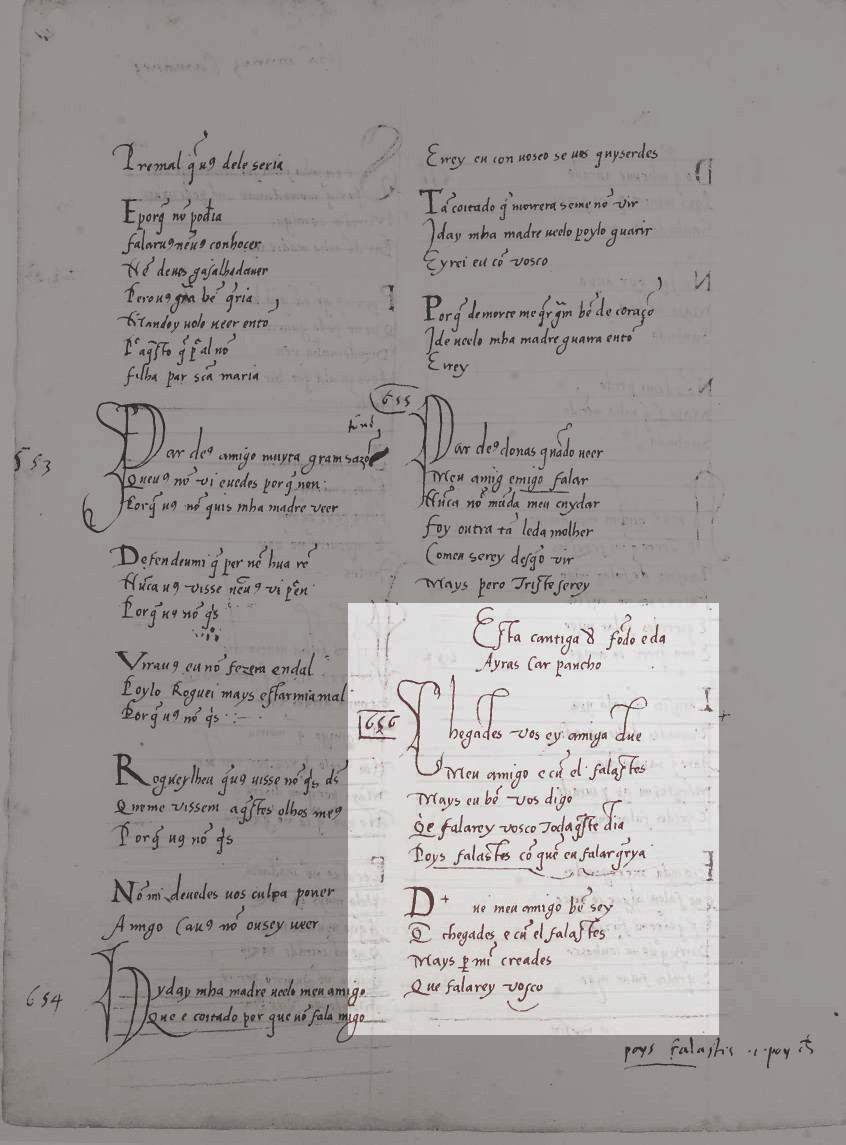 Per mal q̃ uꝯ dele seria
E porq̃ nõ podia
falaruꝯ nẽ uꝯ conhocer
Nẽ deuos gasalhadauer
Pero uꝯ grã bẽ q̃ria
Mandoy uolo ueer entõ
filha par scã maria
553
Par deꝯ amigo muyta gram sazõ
Que uꝯ nõ vi e uedes por q̃ non
Porq̃ uꝯ nõ quis mha madre veer
Defendeumi q̃ per nẽ hua rẽ
Nũca uꝯ visse nẽ uꝯ vi pẽn
Porq̃ uꝯ nõ q̃s
Virauꝯ eu nõ fezera endal
Poylo Roguei mays estarmia mal
Porq̃ uꝯ nõ q̃s
Rogueylheu q̃ uꝯ uisse nõ q̃s dꝯ
Que me vissem aq̃stes olhos meꝯ
Porq̃ uꝯ nõ q̃s
Nõ mi deuedes uos culpa poner
Amigo Ca uꝯ nõ ousey ueer
654
Hyday mha madre ueelo meu amigo
Que e coitado por que nõ fala migo
Eirey eu con uosco se uos quyserdes
Tã coitado q̃ morrera se me nõ vir
Iday mha madre ueelo poylo guarir
E yrei eu cõ vosco
Porq̃ de morte me q̃r grm̃ bẽ de coraçõ
Ide ueelo mha madre guarra entõ
Eirey
655
Par deꝯ donas quãdo ueer
Meu amig e migo falar
Nũca nõ mũda meu cuydar
Foy outra tã leda molher
Comeu serey desq̃o vir
Mays pero Triste serey
Esta cantiga d fõdo e da
Ayras Carpancho
656
Chegades vos ey amiga due
Meu amigo e cũ el falastes
Mays eu bẽ vos digo
Q̃e falarey vosco Todaq̃ste dia
Poys falastes cõ quẽ eu falar q̃rya
D+ ue meu amigo bẽ sey
Q chegades e cũ el falastes
Mays ꝑ mĩ creades
Que falarey vosco
poys falastis